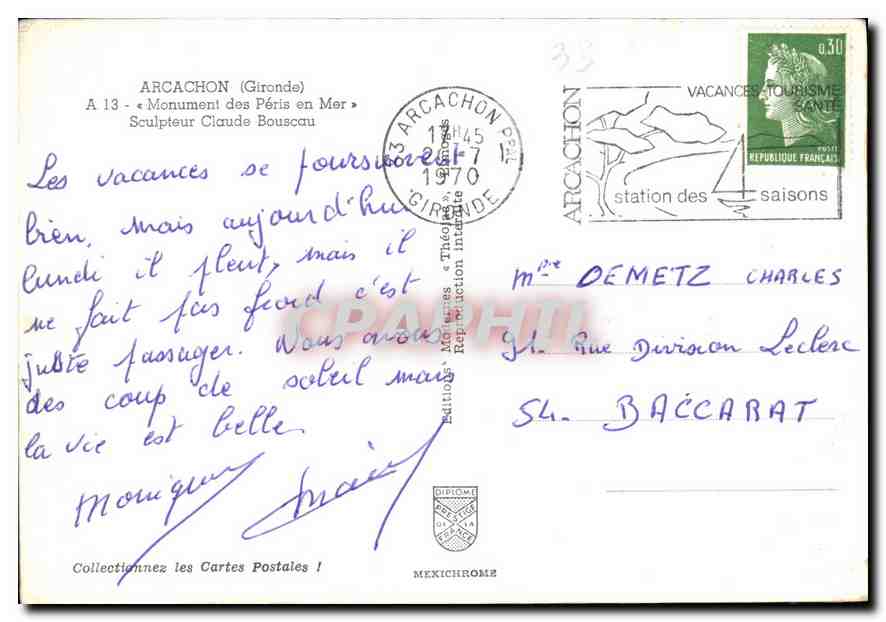 ARCACHON (Gironde)
A 13 - « Monument des Péris en Mer »
Sculpteur Claude Bouscau
Les vacances se poursuivent
bien, mais aujourd'hui
lundi il pleut, mais il
ne fait pas froid c'est
juste passager. Nous avons
des coup de soleil mais
la vie est belle
Monique
Collectionnez les Cartes Postales !
Editions Modernes « Théojac », Limoges
Reproduction interdite
DIPLOME
PRESTIGE
DE LA
FRANCE
MEXICHROME
33 ARCACHON PPAL
17H45
1970
GIRONDE
ARCACHON
VACANCES-TOURISME
SANTÉ
station des saisons
0,30
POSTES
REPUBLIQUE FRANÇAISE
CPARHTI
DEMETZ CHARLES
91. Rue Division Leclerc
54. BACCARAT
39